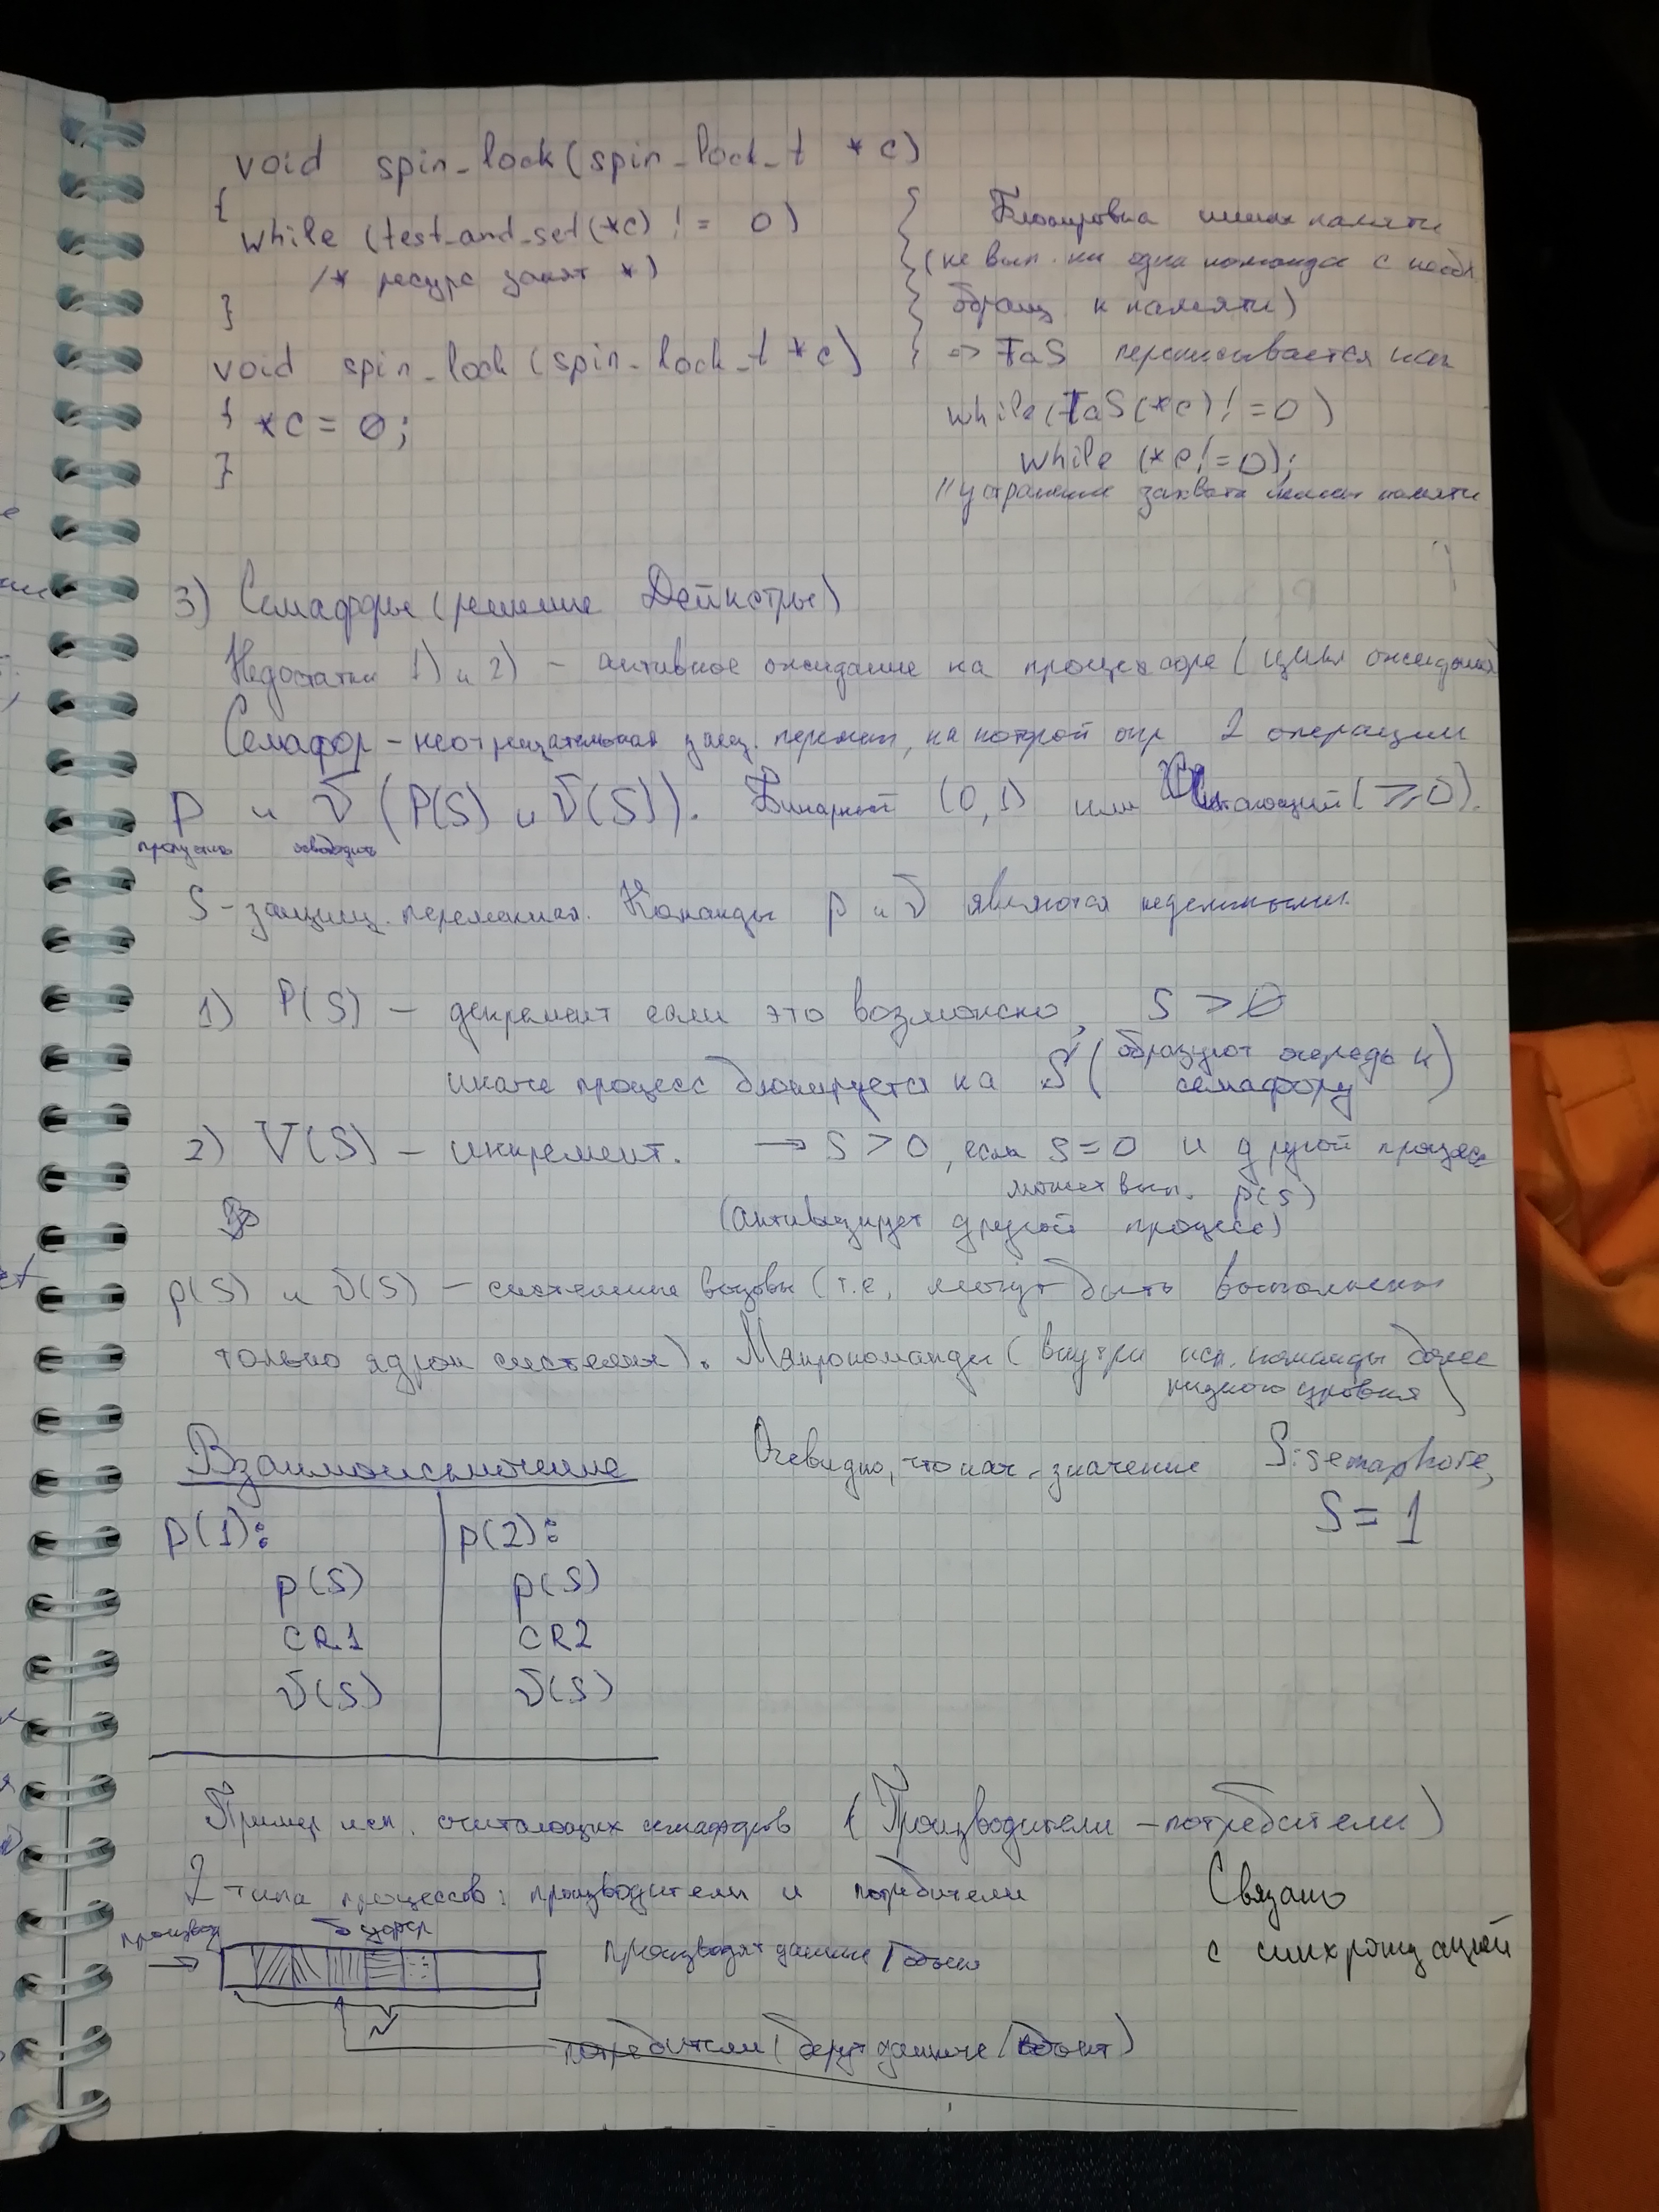 void spin_lock(spin_lock_t *c)
{
while (test_and_set(*c) != 0)
/* ресурс занят *)
}
void spin_lock (spin_lock_t *c)
{ *c = 0;
}
Блокировка шины памяти
(не вып. ни одна команда с необх
обращ к памяти)
=> TaS переписывается как
while(TaS(*c)!=0)
while (*c!=0);
// устранение захвата шины памяти
3) Семафоры (решение Дейкстры)
Недостатки 1) и 2) - активное ожидание на процессоре (цикл ожидания
Семафор - неотрицательная защ. перемен, на которой опр 2 операции
P и V (P(S) и V(S)). Бинарный (0,1) или Считающий (≥0).
пропустить освободить
S - защищ. переменная. Команды P и V являются неделимыми.
1) P(S) - декремент если это возможно, S > 0
иначе процесс блокируется на S (образуют очередь к
семафору)
2) V(S) - инкремент. → S > 0, если S=0 и другой процесс
может вып. p(s)
(активизирует другой процесс)
p(S) и V(S) - системные вызовы (т.е. могут быть выполнены
только ядром системы). Макрокоманды (внутри исп. команды более
низкого уровня)
Взаимоисключение
Очевидно, что нач. значение S:semaphore,
S = 1
p(1): p(2):
p(S) p(S)
CR1 CR2
V(S) V(S)
Пример исп. считающих семафоров (Производители - потребители)
2 типа процессов: производители и потребители
Связано
с синхронизацией
производ
буфер
производят данные /
N
потребители (берут данные /